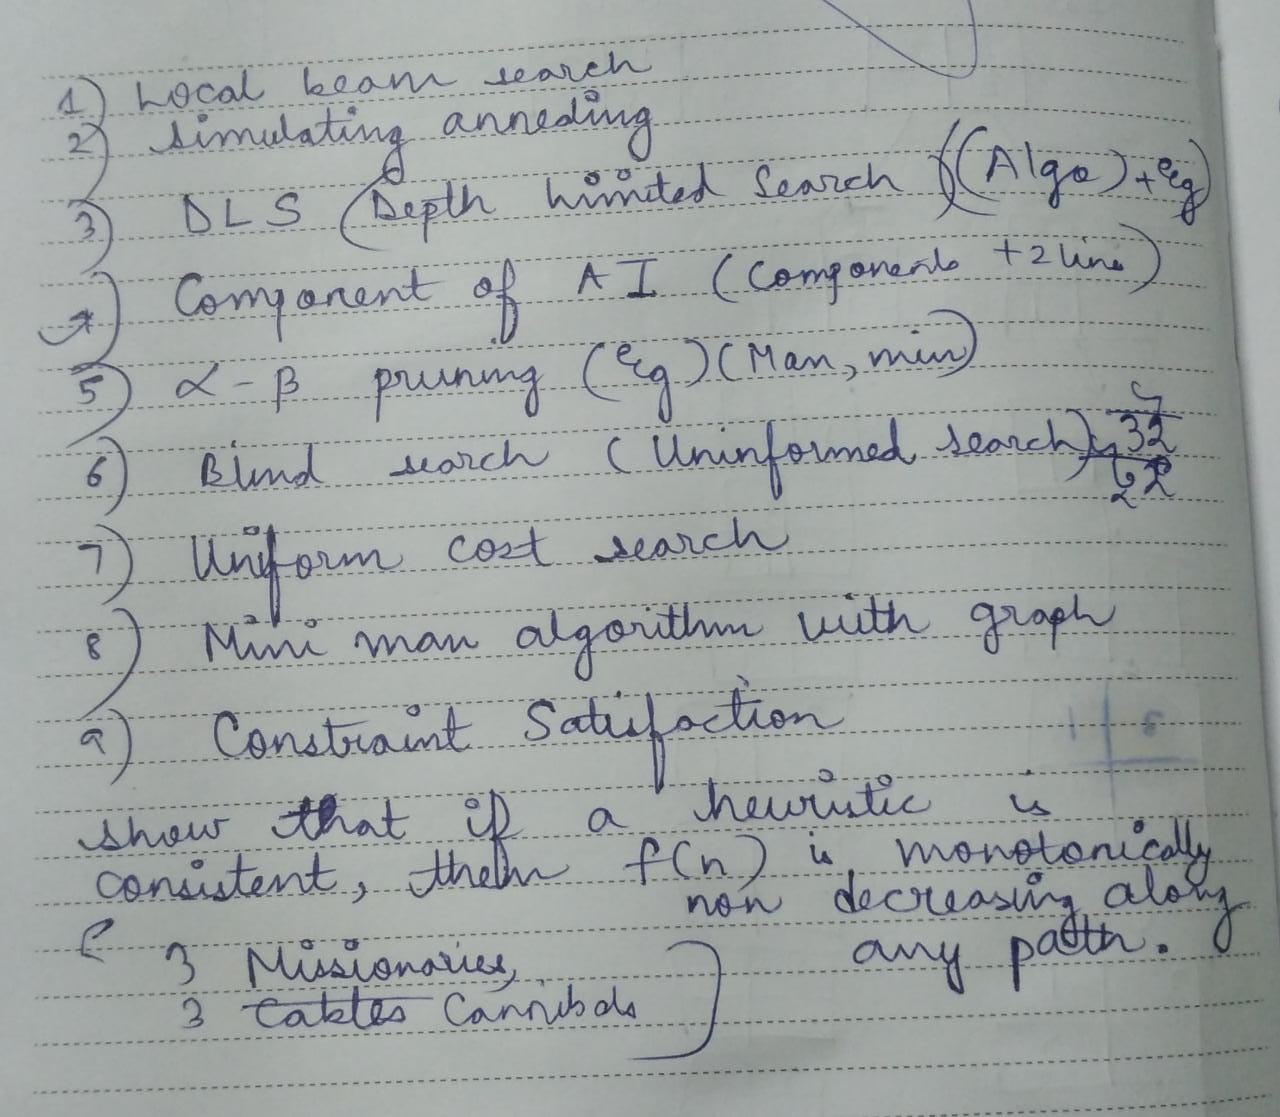 1) Local beam search
2) Simulating anneding
3) DLS (Depth limited Search) ((Algo) + eg)
Component of AI (Components + 2 line)
5) α-β pruning (eg) (Man, min)
6) Blind search (Uninformed search)
7) Uniform cost search
8) Mini man algorithm with graph
9) Constraint Satisfaction
show that if a heuristic is
consistent, then f(n) is monotonically
non decreasing along
any path.
3 Missionaries,
3 Cannibals